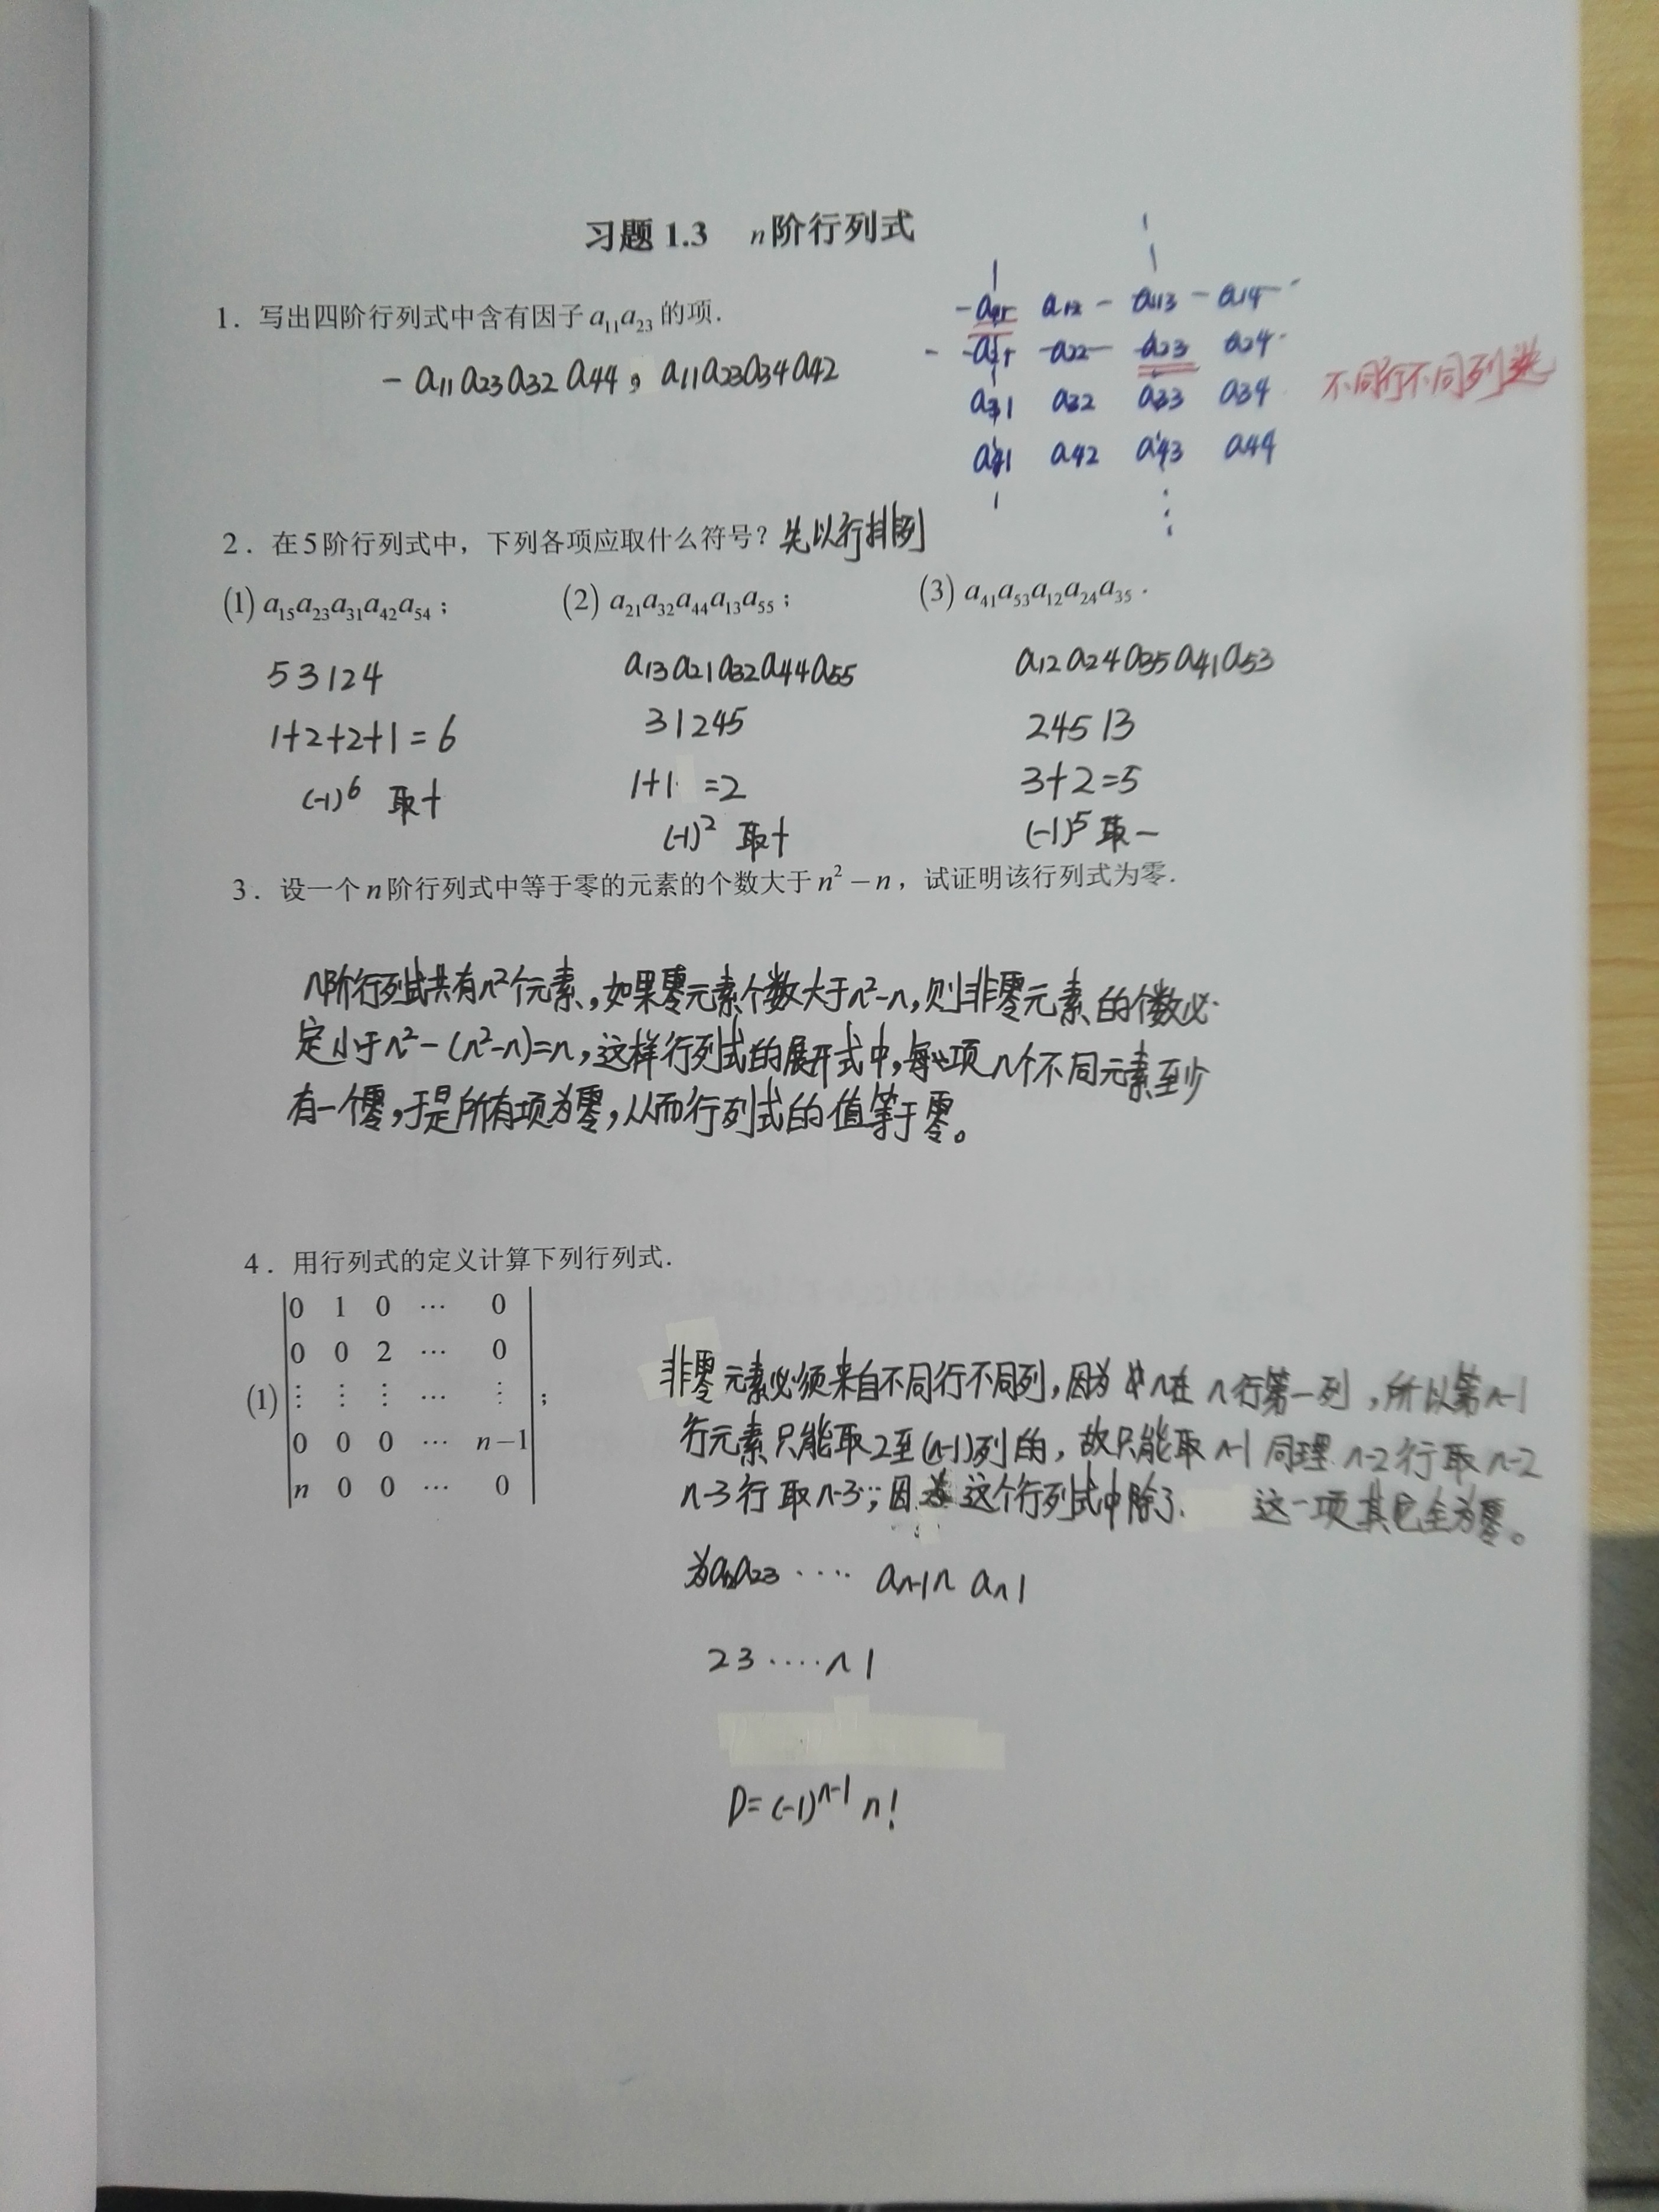 习题 1.3 n阶行列式
1. 写出四阶行列式中含有因子 a₁₁a₂₃ 的项.
- a11 a23 a32 a44, a11a23a34a42
a12 - a13 - a14
a22 a23 a24
a31 a32 a33 a34
a41 a42 a43 a44
不同行不同列选
2. 在5阶行列式中, 下列各项应取什么符号? 先以行排列
(1) a₁₅a₂₃a₃₁a₄₂a₅₄ ; (2) a₂₁a₃₂a₄₄a₁₃a₅₅ ; (3) a₄₁a₅₃a₁₂a₂₄a₃₅ .
a13a21a32a44a55 a12a24a35a41a53
53124 31245 24513
1+2+2+1=6 1+1 =2 3+2=5
(-1)⁶ 取+ (-1)² 取+ (-1)⁵ 取-
3. 设一个 n 阶行列式中等于零的元素的个数大于 n² - n, 试证明该行列式为零.
n阶行列式共有n²个元素,如果零元素个数大于n²-n,则非零元素的个数必
定小于n²-(n²-n)=n,这样行列式的展开式中,每项n个不同元素至少
有一个零,于是所有项为零,从而行列式的值等于零。
4. 用行列式的定义计算下列行列式.
0 1 0 ⋯ 0
0 0 2 ⋯ 0
(1) ⋮ ⋮ ⋮ ⋯ ⋮ ;
0 0 0 ⋯ n-1
n 0 0 ⋯ 0
非零元素必须来自不同行不同列,因为n在n行第一列,所以第n-1
行元素只能取2至(n-1)列的,故只能取n-1同理n-2行取n-2
n-3行取n-3…;因为这个行列式中除了 这一项其它全为零。
为a12a23 ···· an-1n an1
23····n1
D=(-1)ⁿ⁻¹ n!